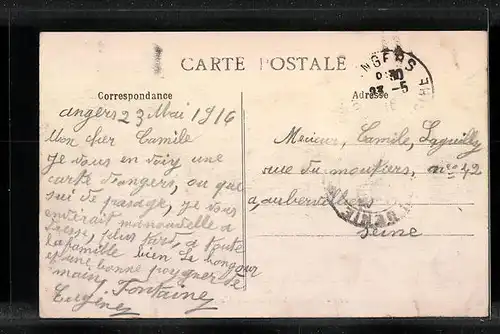 CARTE POSTALE
Correspondance
Adresse
ANGERS
23 -5
angers 23 Mai 1916
Mon cher Camile
Je vous en voiy une
carte d'angers, ou que
sui de pasage, je vous
endirait ma nouvelle a
dresse, plus tard, a toute
la famille bien le bonjour
et une bonne poygner de
main, Fontaine
Eugene
Mecieur, Camile,
rue du moutiers, no 42
a, aubervilliers
Seine